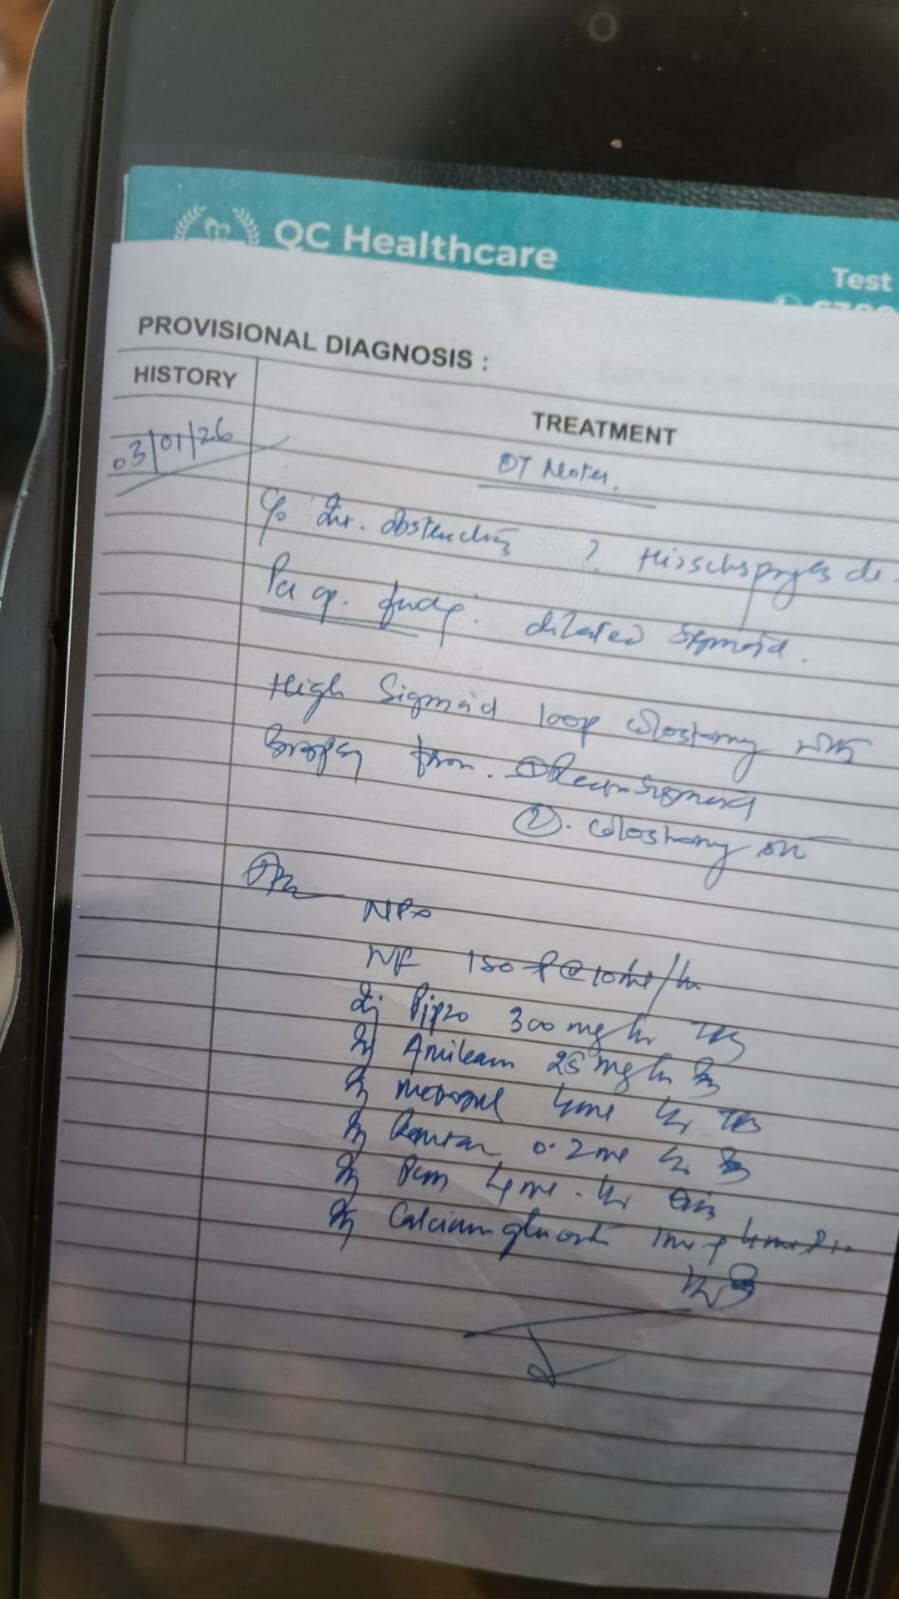 QC Healthcare
Test
PROVISIONAL DIAGNOSIS :
HISTORY
TREATMENT
03/01/26
OT Notes.
Int. obstruction ? Hirschsprungs
Per op. dilated Sigmoid.
High Sigmoid loop colostomy with
Biopsy from. ① Rectosigmoid
②. colostomy
NPO
IVF Iso P @ 10ml/hr
Inj Pipzo 300 mg iv TDS
Inj Amikacin 25 mg iv
Inj Metrogyl 4ml iv TDS
Inj Rantac 0.2ml iv
Inj Pcm 4ml. iv
Inj Calcium gluconate 1ml +
iv